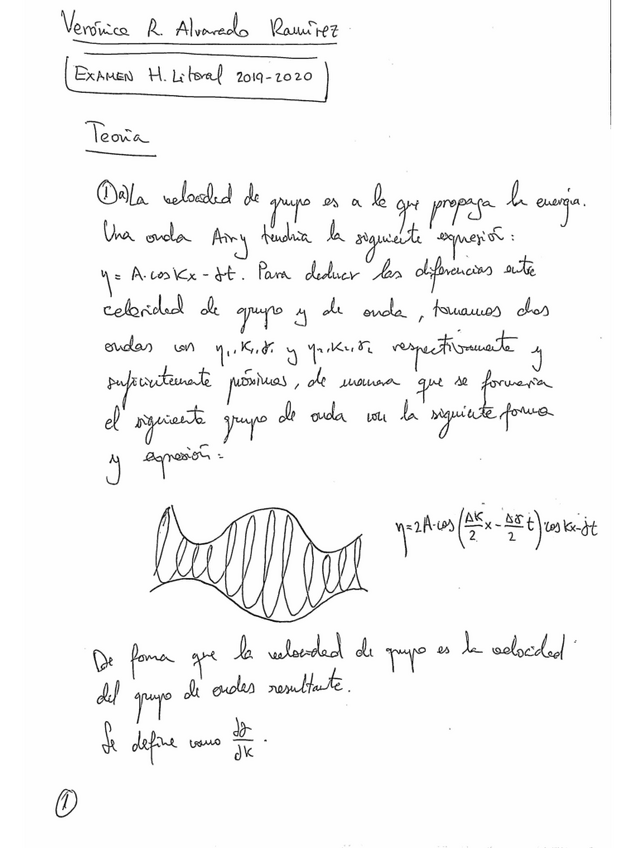 Verónica R. Alvarado Ramírez
EXAMEN H. Litoral 2019-2020
Teoría
① a) La velocidad de grupo es a la que propaga la energía.
Una onda Airy tendría la siguiente expresión:
η = A·cos Kx - σt. Para deducir las diferencias entre
celeridad de grupo y de onda, tomamos dos
ondas con η₁, K₁, σ₁ y η₂, K₂, σ₂ respectivamente y
suficientemente próximas, de manera que se formaría
el siguiente grupo de onda con la siguiente forma
y expresión:
η = 2A·cos(ΔK/2 x - Δσ/2 t) cos Kx - σt
De forma que la velocidad de grupo es la velocidad
del grupo de ondas resultante.
Se define como dσ/dK.
①